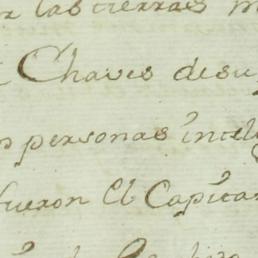 las tierras
Chaves desu
personas inteli
fueron El Capitan